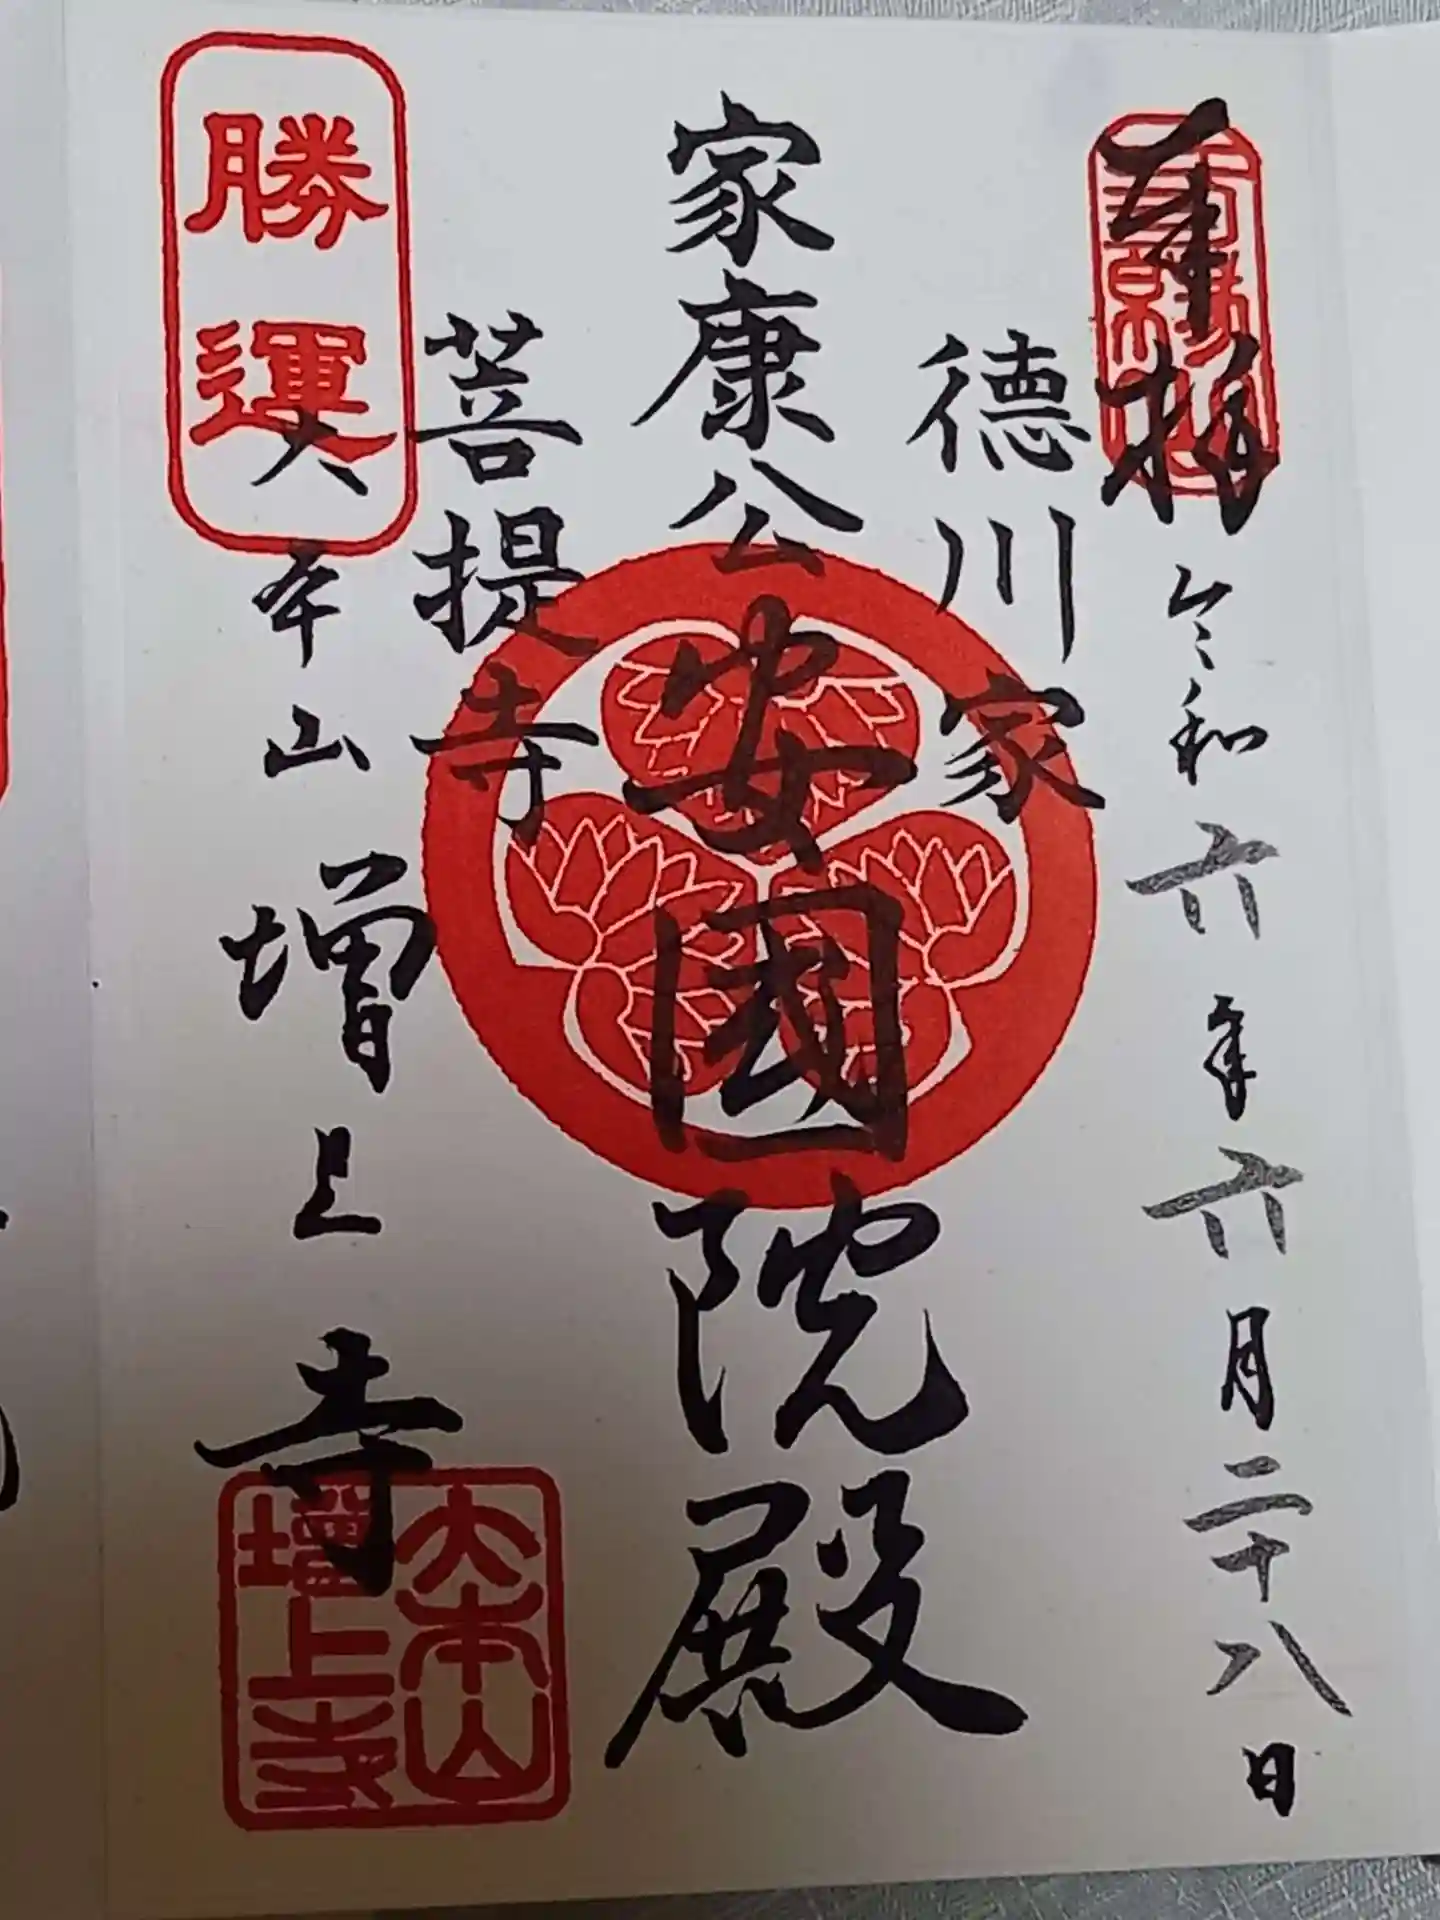 奉拝
令和六年六月二十八日
徳川家
家康公
安國院殿
菩提寺
勝運
大本山
増上寺
大本山
增上寺